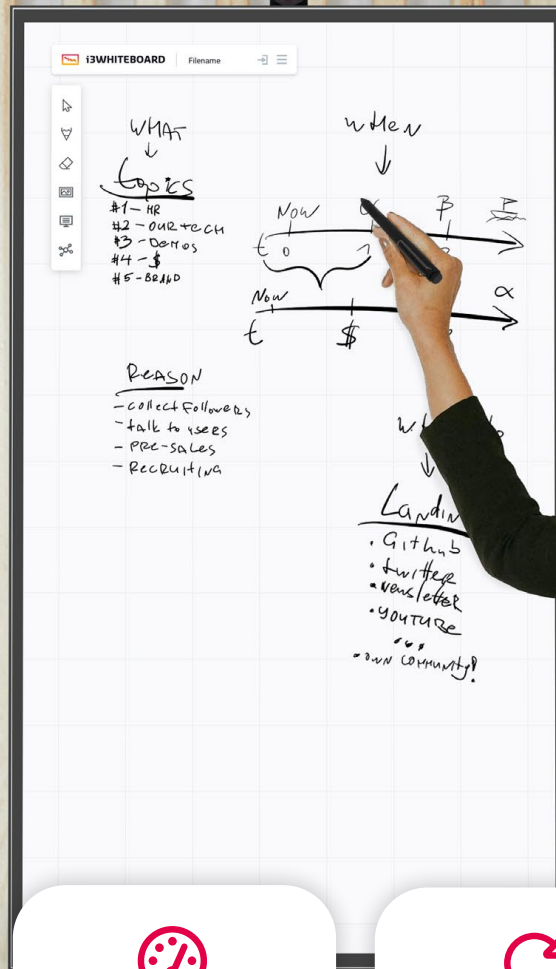 i3WHITEBOARD Filename
WHAT
topics
#1 - HR
#2 - OUR tECH
#3 - DeMOS
#4 - $
#5 - BRAND
wHeN
Now
β
t 0
Now
α
t $
ReASON
- collect Followers
- talk to users
- PRe-SALes
- RecRuitiNG
LaNdiN
• Github
• twitter
• Newsletter
• YOUTUBe
...
• owN COMMUNity?